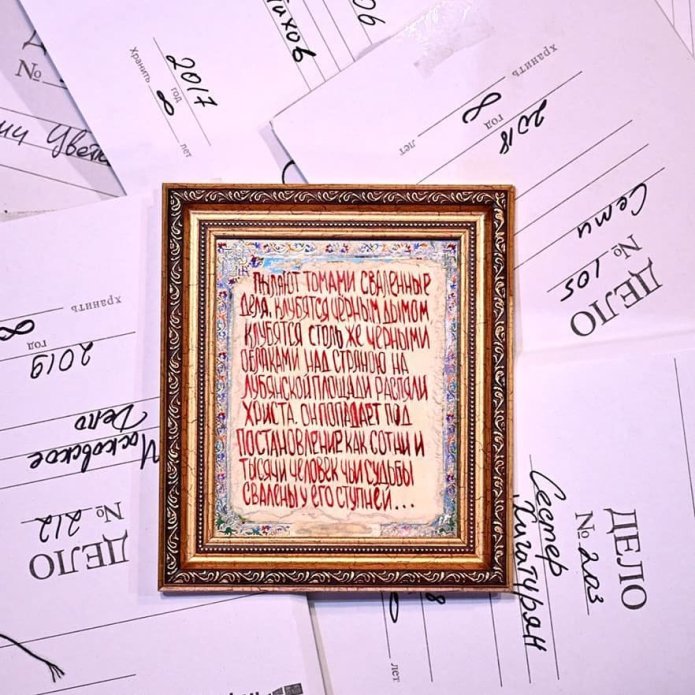 ПЫЛАЮТ ТОМАМИ СВАЛЕННЫЕ
ДЕЛА, КЛУБЯТСЯ ЧЁРНЫМ ДЫМОМ
КЛУБЯТСЯ СТОЛЬ ЖЕ ЧЕРНЫМИ
ОБЛАКАМИ НАД СТРАНОЮ НА
ЛУБЯНСКОЙ ПЛОЩАДИ РАСПЯЛИ
ХРИСТА. ОН ПОПАДАЕТ ПОД
ПОСТАНОВЛЕНИЕ КАК СОТНИ И
ТЫСЯЧИ ЧЕЛОВЕК ЧЬИ СУДЬБЫ
СВАЛЕНЫ У ЕГО СТУПНЕЙ...
2017 год
Хранить ∞ лет
№
06
хранить ∞ лет
2018 год
Сети
№ 105
ДЕЛО
хранить ∞
2019 год
Московское
Дело
№ 212
ДЕЛО
ДЕЛО
№ 203
Сестер
Хачатурян
8
лет